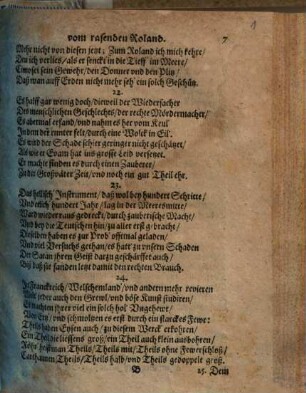 vom rasenden Roland. 7
Mehr nicht von diesen jetzt; Zum Roland ich mich kehre/
Den ich verließ/ als er senckt in die Tieff im Meere/
Cimosci sein Gewehr/ den Donner und den Plitz/
Daß man auff Erden nicht mehr seh' ein solch Geschütz.
22.
Es halff gar wenig doch/ dieweil der Wiedersacher
Des menschlichen Geschlechts/ der rechte Mördermacher/
Es abermal erfand/ und nahm es her vom Keul
In dem der runter felt/ durch eine Wolck in Eil.
Es ward der Schade schier geringer nicht geschätzet/
Als wie er Evam hat ins grosse Leid versetzet.
Er macht es funden es durch einen Zauberer/
Zu der Großväter Zeit/ und noch ein gut Theil ehr.
23.
Das hellisch Instrument/ daß wol bey hundert Schritte/
Und etlich hundert Jahr/ lag in der Meeresmitte/
Ward wieder rausgebracht/ durch zauberische Macht/
Und bey die Teutschen hin/ zu aller erst gebracht/
Dieselben haben es zur Prob' offtermal geladen/
Und viel Versuchs gethan/ es hatt' zu unserm Schaden
Der Satan ihren Geist darzu geschärffet auch/
Biß daß sie fanden letzt damit den rechten Brauch.
24.
In Franckreich/ Welschenland/ und andern mehr revieren
Thät jeder auch den Grewl/ und böse Kunst studiren/
theils haben Eysen auch/ zu diesem Werck erkohren/
Ein Theil sie liessens groß/ ein Theil auch klein ausbohren/
Röhr hieß man Theils/ Theils mit/ Theils ohne Fewerschloß/
Carthaunen Theils/ Theils halb/ und Theils gedoppelt groß.
B 25. Dem